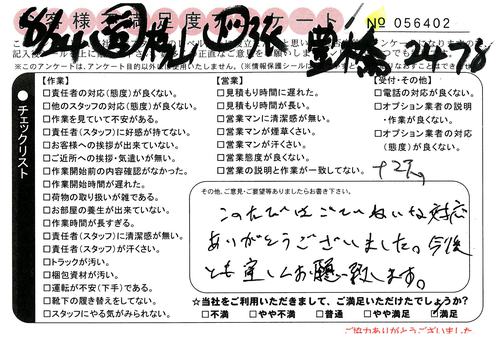 お客様不満足度アンケート
№ 056402
豊橋 24-78
チェックリスト
【作業】
□責任者の対応(態度)が良くない。
□他のスタッフの対応(態度)が良くない。
□作業を見ていて不安がある。
□責任者(スタッフ)に好感が持てない。
□お客様への挨拶が出来ていない。
□ご近所への挨拶・気遣いが無い。
□作業開始前の内容確認がなかった。
□作業開始時間が遅れた。
□荷物の取り扱いが雑である。
□お部屋の養生が出来ていない。
□作業時間が長すぎる。
□責任者(スタッフ)に清潔感が無い。
□責任者(スタッフ)が汗くさい。
□トラックが汚い。
□梱包資材が汚い。
□運転が不安(下手)である。
□靴下の履き替えをしてない。
□スタッフにやる気がみられない。
【営業】
□見積もり時間に遅れた。
□見積もり時間が長い。
□営業マンに清潔感が無い。
□営業マンが煙草くさい。
□営業マンが汗くさい。
□営業態度が良くない。
□営業の説明と作業が一致してない。
【受付・その他】
□電話の対応が良くない。
□オプション業者の説明
・作業が良くない。
□オプション業者の対応
(態度)が良くない。
その他、ご意見・ご要望等ありましたらお書き下さい。
このたびはごていねいな対応
ありがとうございました。今後
とも宜しくお願い致します。
☆当社をご利用いただきまして、ご満足いただけたでしょうか?
□不満 □やや不満 □普通 □やや満足 ☑満足
ご協力ありがとうございました